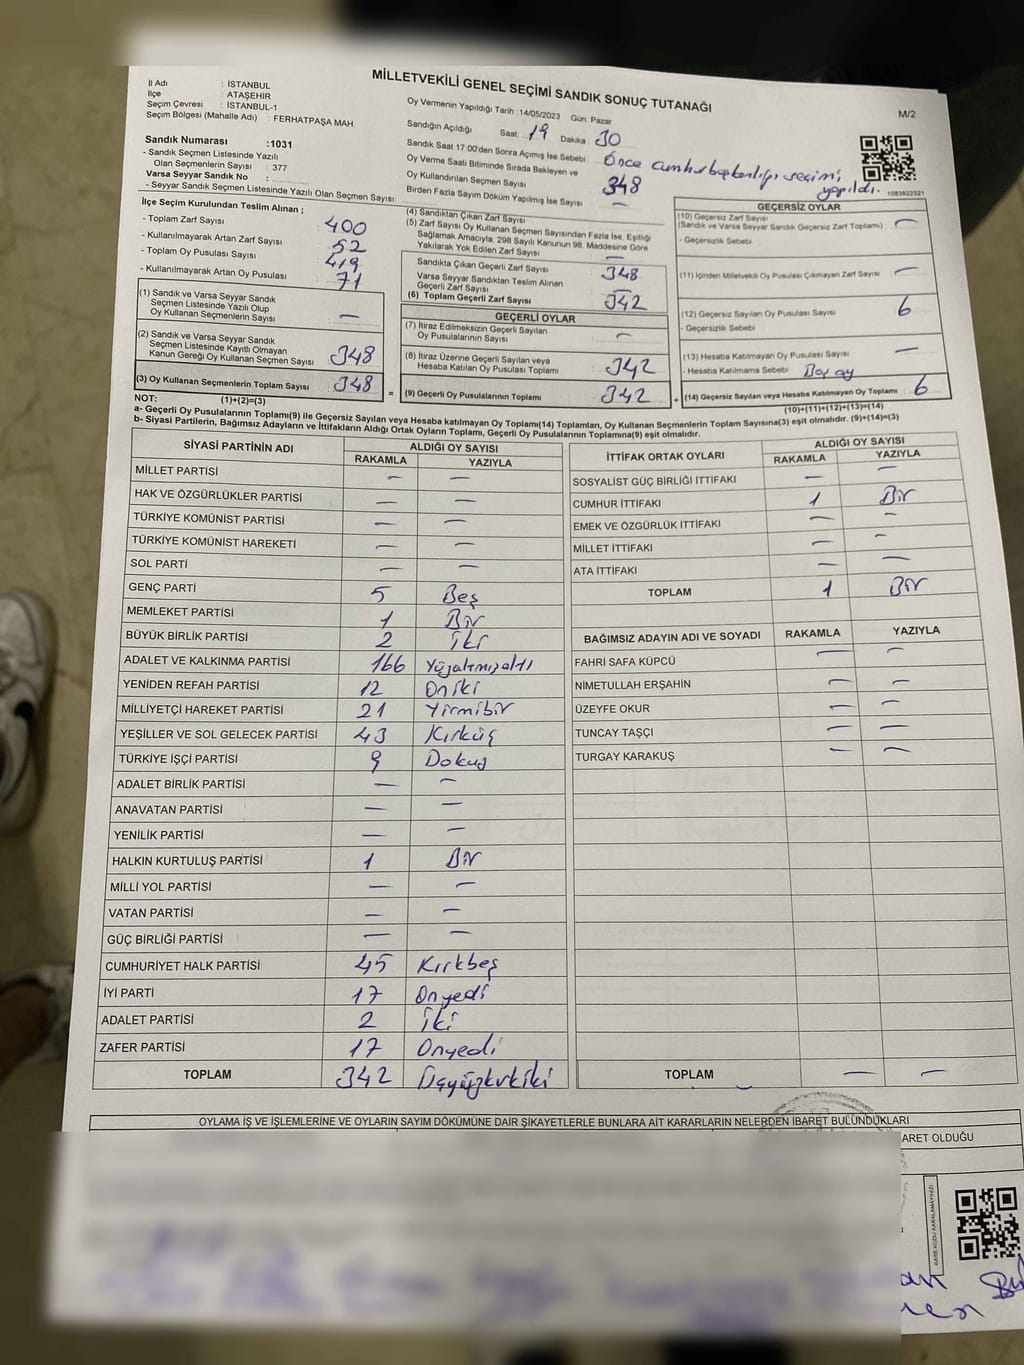 MİLLETVEKİLİ GENEL SEÇİMİ SANDIK SONUÇ TUTANAĞI
M/2
İl Adı : İSTANBUL
İlçe : ATAŞEHİR
Seçim Çevresi : İSTANBUL-1
Seçim Bölgesi (Mahalle Adı) : FERHATPAŞA MAH.
Sandık Numarası :1031
- Sandık Seçmen Listesinde Yazılı
Olan Seçmenlerin Sayısı : 377
Varsa Seyyar Sandık No :
- Seyyar Sandık Seçmen Listesinde Yazılı Olan Seçmen Sayısı:
Oy Vermenin Yapıldığı Tarih :14/05/2023 Gün: Pazar
Sandığın Açıldığı Saat: 19 Dakika: 30
Sandık Saat 17:00'den Sonra Açımış İse Sebebi : Önce cumhurbaşkanlığı seçimi
yapıldı.
Oy Verme Saati Bitiminde Sırada Bekleyen ve
Oy Kullandırılan Seçmen Sayısı 348
Birden Fazla Sayım Döküm Yapılmış İse Sayısı —
1083622321
İlçe Seçim Kurulundan Teslim Alınan ;
- Toplam Zarf Sayısı 400
- Kullanılmayarak Artan Zarf Sayısı 52
- Toplam Oy Pusulası Sayısı 419
- Kullanılmayarak Artan Oy Pusulası 71
(1) Sandık ve Varsa Seyyar Sandık
Seçmen Listesinde Yazılı Olup
Oy Kullanan Seçmenlerin Sayısı —
(2) Sandık ve Varsa Seyyar Sandık
Seçmen Listesinde Kayıtlı Olmayan
Kanun Gereği Oy Kullanan Seçmen Sayısı 348
(3) Oy Kullanan Seçmenlerin Toplam Sayısı 348
(4) Sandıktan Çıkan Zarf Sayısı
(5) Zarf Sayısı Oy Kullanan Seçmen Sayısından Fazla İse, Eşitliği
Sağlamak Amacıyla, 298 Sayılı Kanunun 98. Maddesine Göre
Yakılarak Yok Edilen Zarf Sayısı —
Sandıkta Çıkan Geçerli Zarf Sayısı 348
Varsa Seyyar Sandıktan Teslim Alınan
Geçerli Zarf Sayısı —
(6) Toplam Geçerli Zarf Sayısı 342
GEÇERLİ OYLAR
(7) İtiraz Edilmeksizin Geçerli Sayılan
Oy Pusulalarının Sayısı —
(8) İtiraz Üzerine Geçerli Sayılan veya
Hesaba Katılan Oy Pusulası Toplamı 342
= (9) Geçerli Oy Pusulalarının Toplamı 342
GEÇERSİZ OYLAR
(10) Geçersiz Zarf Sayısı
(Sandık ve Varsa Seyyar Sandık Geçersiz Zarf Toplamı) : —
- Geçersizlik Sebebi
(11) İçinden Milletvekili Oy Pusulası Çıkmayan Zarf Sayısı —
(12) Geçersiz Sayılan Oy Pusulası Sayısı 6
- Geçersizlik Sebebi
(13) Hesaba Katılmayan Oy Pusulası Sayısı —
- Hesaba Katılmama Sebebi Boş oy
+ (14) Geçersiz Sayılan veya Hesaba Katılmayan Oy Toplamı 6
NOT: (1)+(2)=(3) (10)+(11)+(12)+(13)=(14)
a- Geçerli Oy Pusulalarının Toplamı(9) ile Geçersiz Sayılan veya Hesaba katılmayan Oy Toplamı(14) Toplamları, Oy Kullanan Seçmenlerin Toplam Sayısına(3) eşit olmalıdır. (9)+(14)=(3)
b- Siyasi Partilerin, Bağımsız Adayların ve İttifakların Aldığı Ortak Oyların Toplamı, Geçerli Oy Pusulalarının Toplamına(9) eşit olmalıdır.
SİYASİ PARTİNİN ADI ALDIĞI OY SAYISI
RAKAMLA YAZIYLA
MİLLET PARTİSİ — —
HAK VE ÖZGÜRLÜKLER PARTİSİ — —
TÜRKİYE KOMÜNİST PARTİSİ — —
TÜRKİYE KOMÜNİST HAREKETİ — —
SOL PARTİ — —
GENÇ PARTİ 5 Beş
MEMLEKET PARTİSİ 1 Bir
BÜYÜK BİRLİK PARTİSİ 2 İki
ADALET VE KALKINMA PARTİSİ 166 Yüzaltmışaltı
YENİDEN REFAH PARTİSİ 12 Oniki
MİLLİYETÇİ HAREKET PARTİSİ 21 Yirmibir
YEŞİLLER VE SOL GELECEK PARTİSİ 43 Kırküç
TÜRKİYE İŞÇİ PARTİSİ 9 Dokuz
ADALET BİRLİK PARTİSİ — —
ANAVATAN PARTİSİ — —
YENİLİK PARTİSİ — —
HALKIN KURTULUŞ PARTİSİ 1 Bir
MİLLİ YOL PARTİSİ — —
VATAN PARTİSİ — —
GÜÇ BİRLİĞİ PARTİSİ — —
CUMHURİYET HALK PARTİSİ 45 Kırkbeş
İYİ PARTİ 17 Onyedi
ADALET PARTİSİ 2 İki
ZAFER PARTİSİ 17 Onyedi
TOPLAM 342
İTTİFAK ORTAK OYLARI ALDIĞI OY SAYISI
RAKAMLA YAZIYLA
SOSYALİST GÜÇ BİRLİĞİ İTTİFAKI — —
CUMHUR İTTİFAKI 1 Bir
EMEK VE ÖZGÜRLÜK İTTİFAKI — —
MİLLET İTTİFAKI — —
ATA İTTİFAKI — —
TOPLAM 1 Bir
BAĞIMSIZ ADAYIN ADI VE SOYADI RAKAMLA YAZIYLA
FAHRİ SAFA KÜPCÜ — —
NİMETULLAH ERŞAHİN — —
ÜZEYFE OKUR — —
TUNCAY TAŞÇI — —
TURGAY KARAKUŞ — —
TOPLAM — —
OYLAMA İŞ VE İŞLEMLERİNE VE OYLARIN SAYIM DÖKÜMÜNE DAİR ŞİKAYETLERLE BUNLARA AİT KARARLARIN NELERDEN İBARET BULUNDUKLARI
ARET OLDUĞU
KARE KODU KARALAMAYINIZ